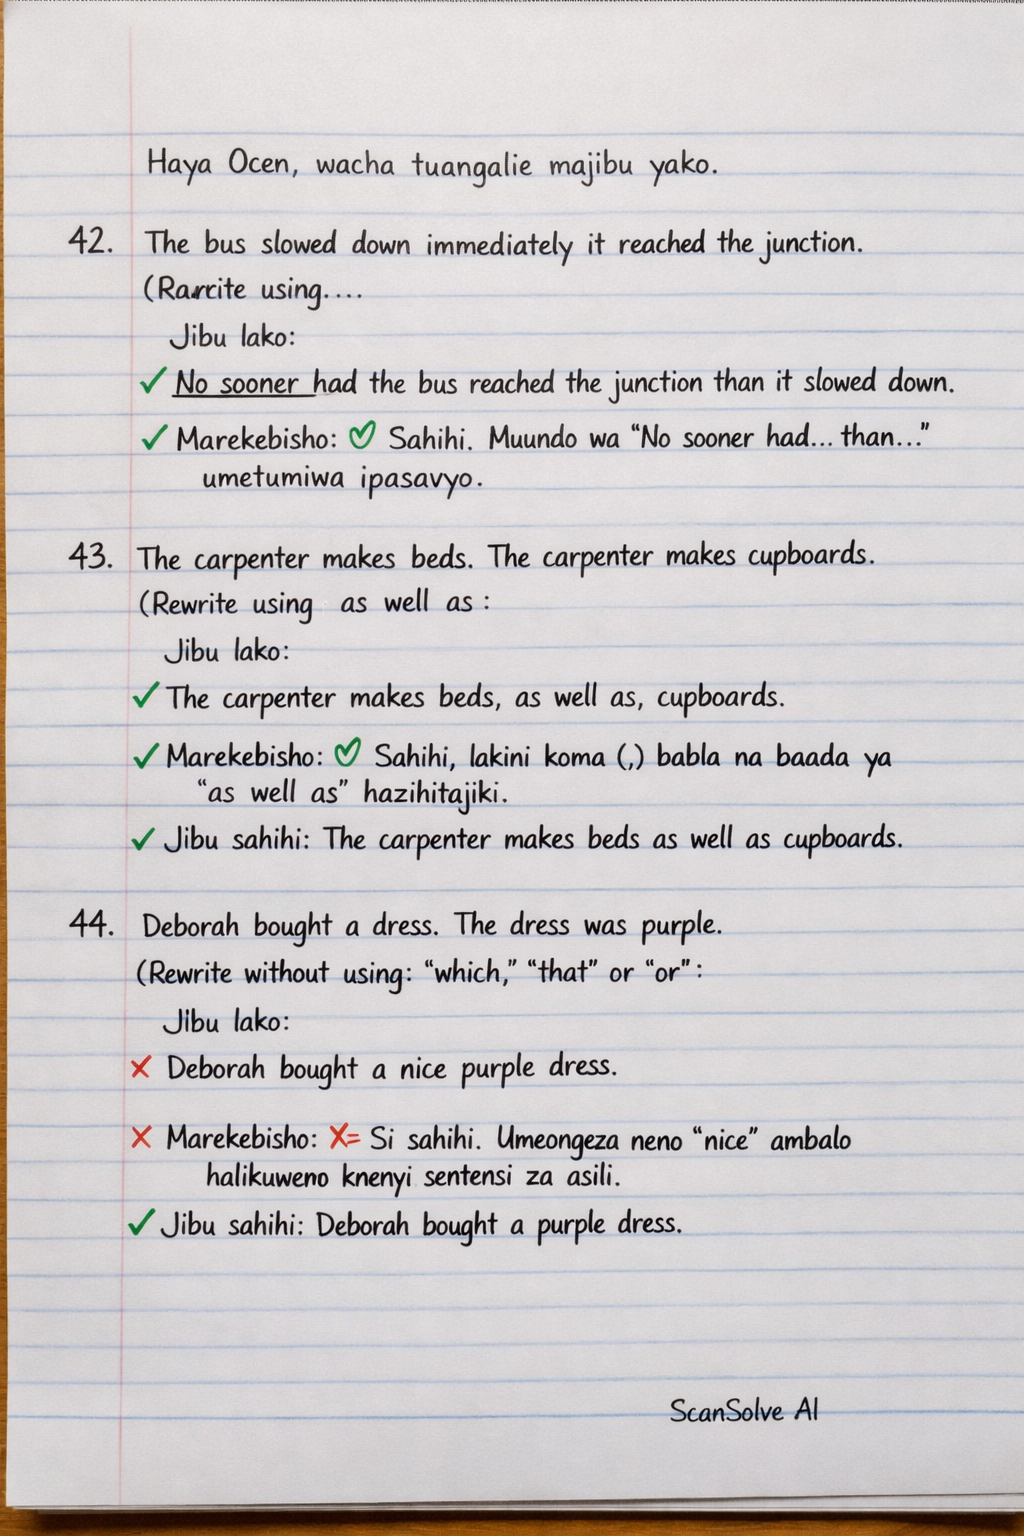 Haya Ocen, wacha tuangalie majibu yako.
42. The bus slowed down immediately it reached the junction.
(Rarcite using....
Jibu lako:
✓ No sooner had the bus reached the junction than it slowed down.
✓ Marekebisho: ♡ Sahihi. Muundo wa “No sooner had... than...”
umetumiwa ipasavyo.
43. The carpenter makes beds. The carpenter makes cupboards.
(Rewrite using as well as :
Jibu lako:
✓ The carpenter makes beds, as well as, cupboards.
✓ Marekebisho: ♡ Sahihi, lakini koma (,) babla na baada ya
“as well as” hazihitajiki.
✓ Jibu sahihi: The carpenter makes beds as well as cupboards.
44. Deborah bought a dress. The dress was purple.
(Rewrite without using: “which,” “that” or “or”:
Jibu lako:
✗ Deborah bought a nice purple dress.
✗ Marekebisho: X= Si sahihi. Umeongeza neno “nice” ambalo
halikuweno knenyi sentensi za asili.
✓ Jibu sahihi: Deborah bought a purple dress.
ScanSolve AI